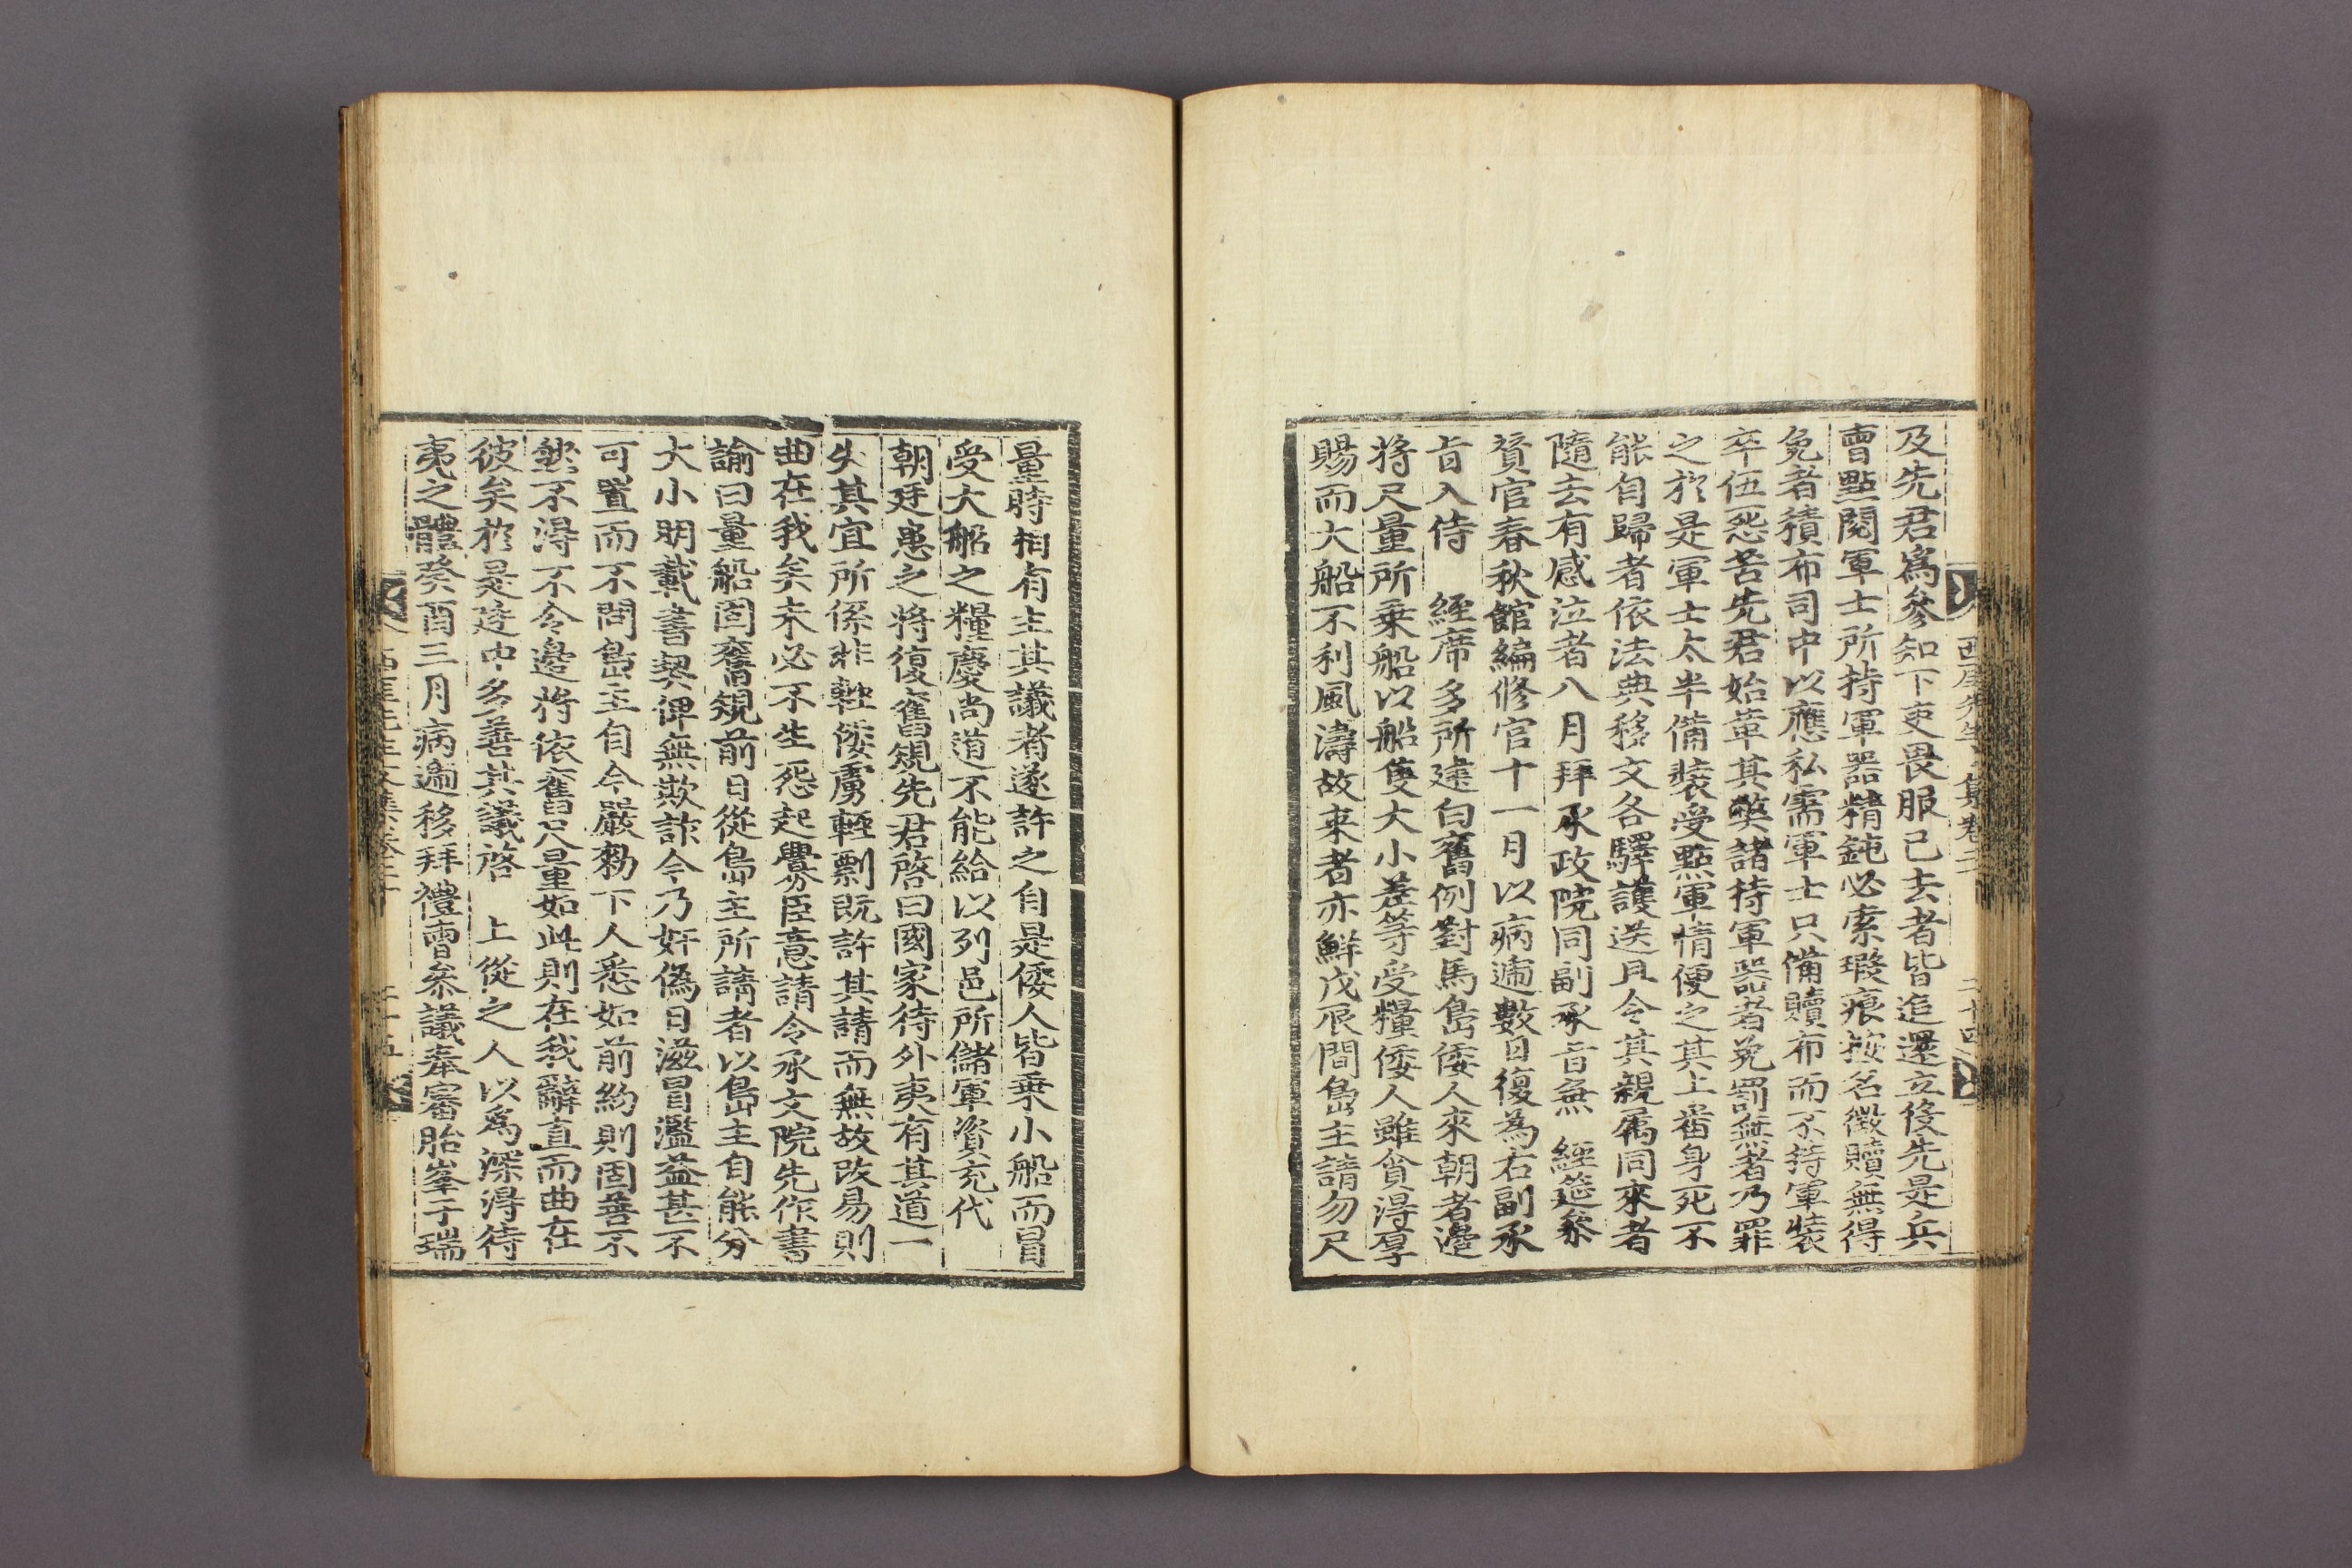 及先君爲參知下吏畏服已去者皆追還立役先是兵
曹點閱軍士所持軍器精鈍必索瑕痕按名徵贖無得
免者積布司中以應私需軍士只備贖布而不持軍裝
卒伍怨苦先君始革其弊諸持軍器者免罰無者乃罪
之於是軍士太半備裝受點軍情便之其上番身死不
能自歸者依法典移文各驛護送且令其親属同來者
隨去有感泣者八月拜承政院同副承旨兼 經筵參
贊官春秋館編修官十一月以病遞數日復為右副承
旨入侍 經席多所建白舊例對馬島倭人來朝者邊
將尺量所乗船以船隻大小差等受糧倭人雖貪得厚
賜而大船不利風濤故来者亦鮮戊辰間島主請勿尺
西厓先生文集卷二 二十四
量時相有主其議者遂許之自是倭人皆乗小船而冒
受大船之糧慶尚道不能給以列邑所儲軍資充代
朝廷患之將復舊規先君啓曰國家待外夷有其道一
失其宜所係非輕倭虜輕剽既許其請而無故改易則
曲在我矣未必不生怨起釁臣意請令承文院先作書
諭曰量船固舊規前日從島主所請者以島主自能分
大小明載書契俾無欺詐今乃奸僞日滋冒濫益甚不
可置而不問島主自今嚴勑下人悉如前約則固善不
然不得不令邊將依舊尺量如此則在我辭直而曲在
彼矣於是廷中多善其議啓 上從之人以爲深得待
夷之體癸酉三月病遞移拜禮曹叅議奉審胎峯于瑞
西厓先生文集卷二 二十五